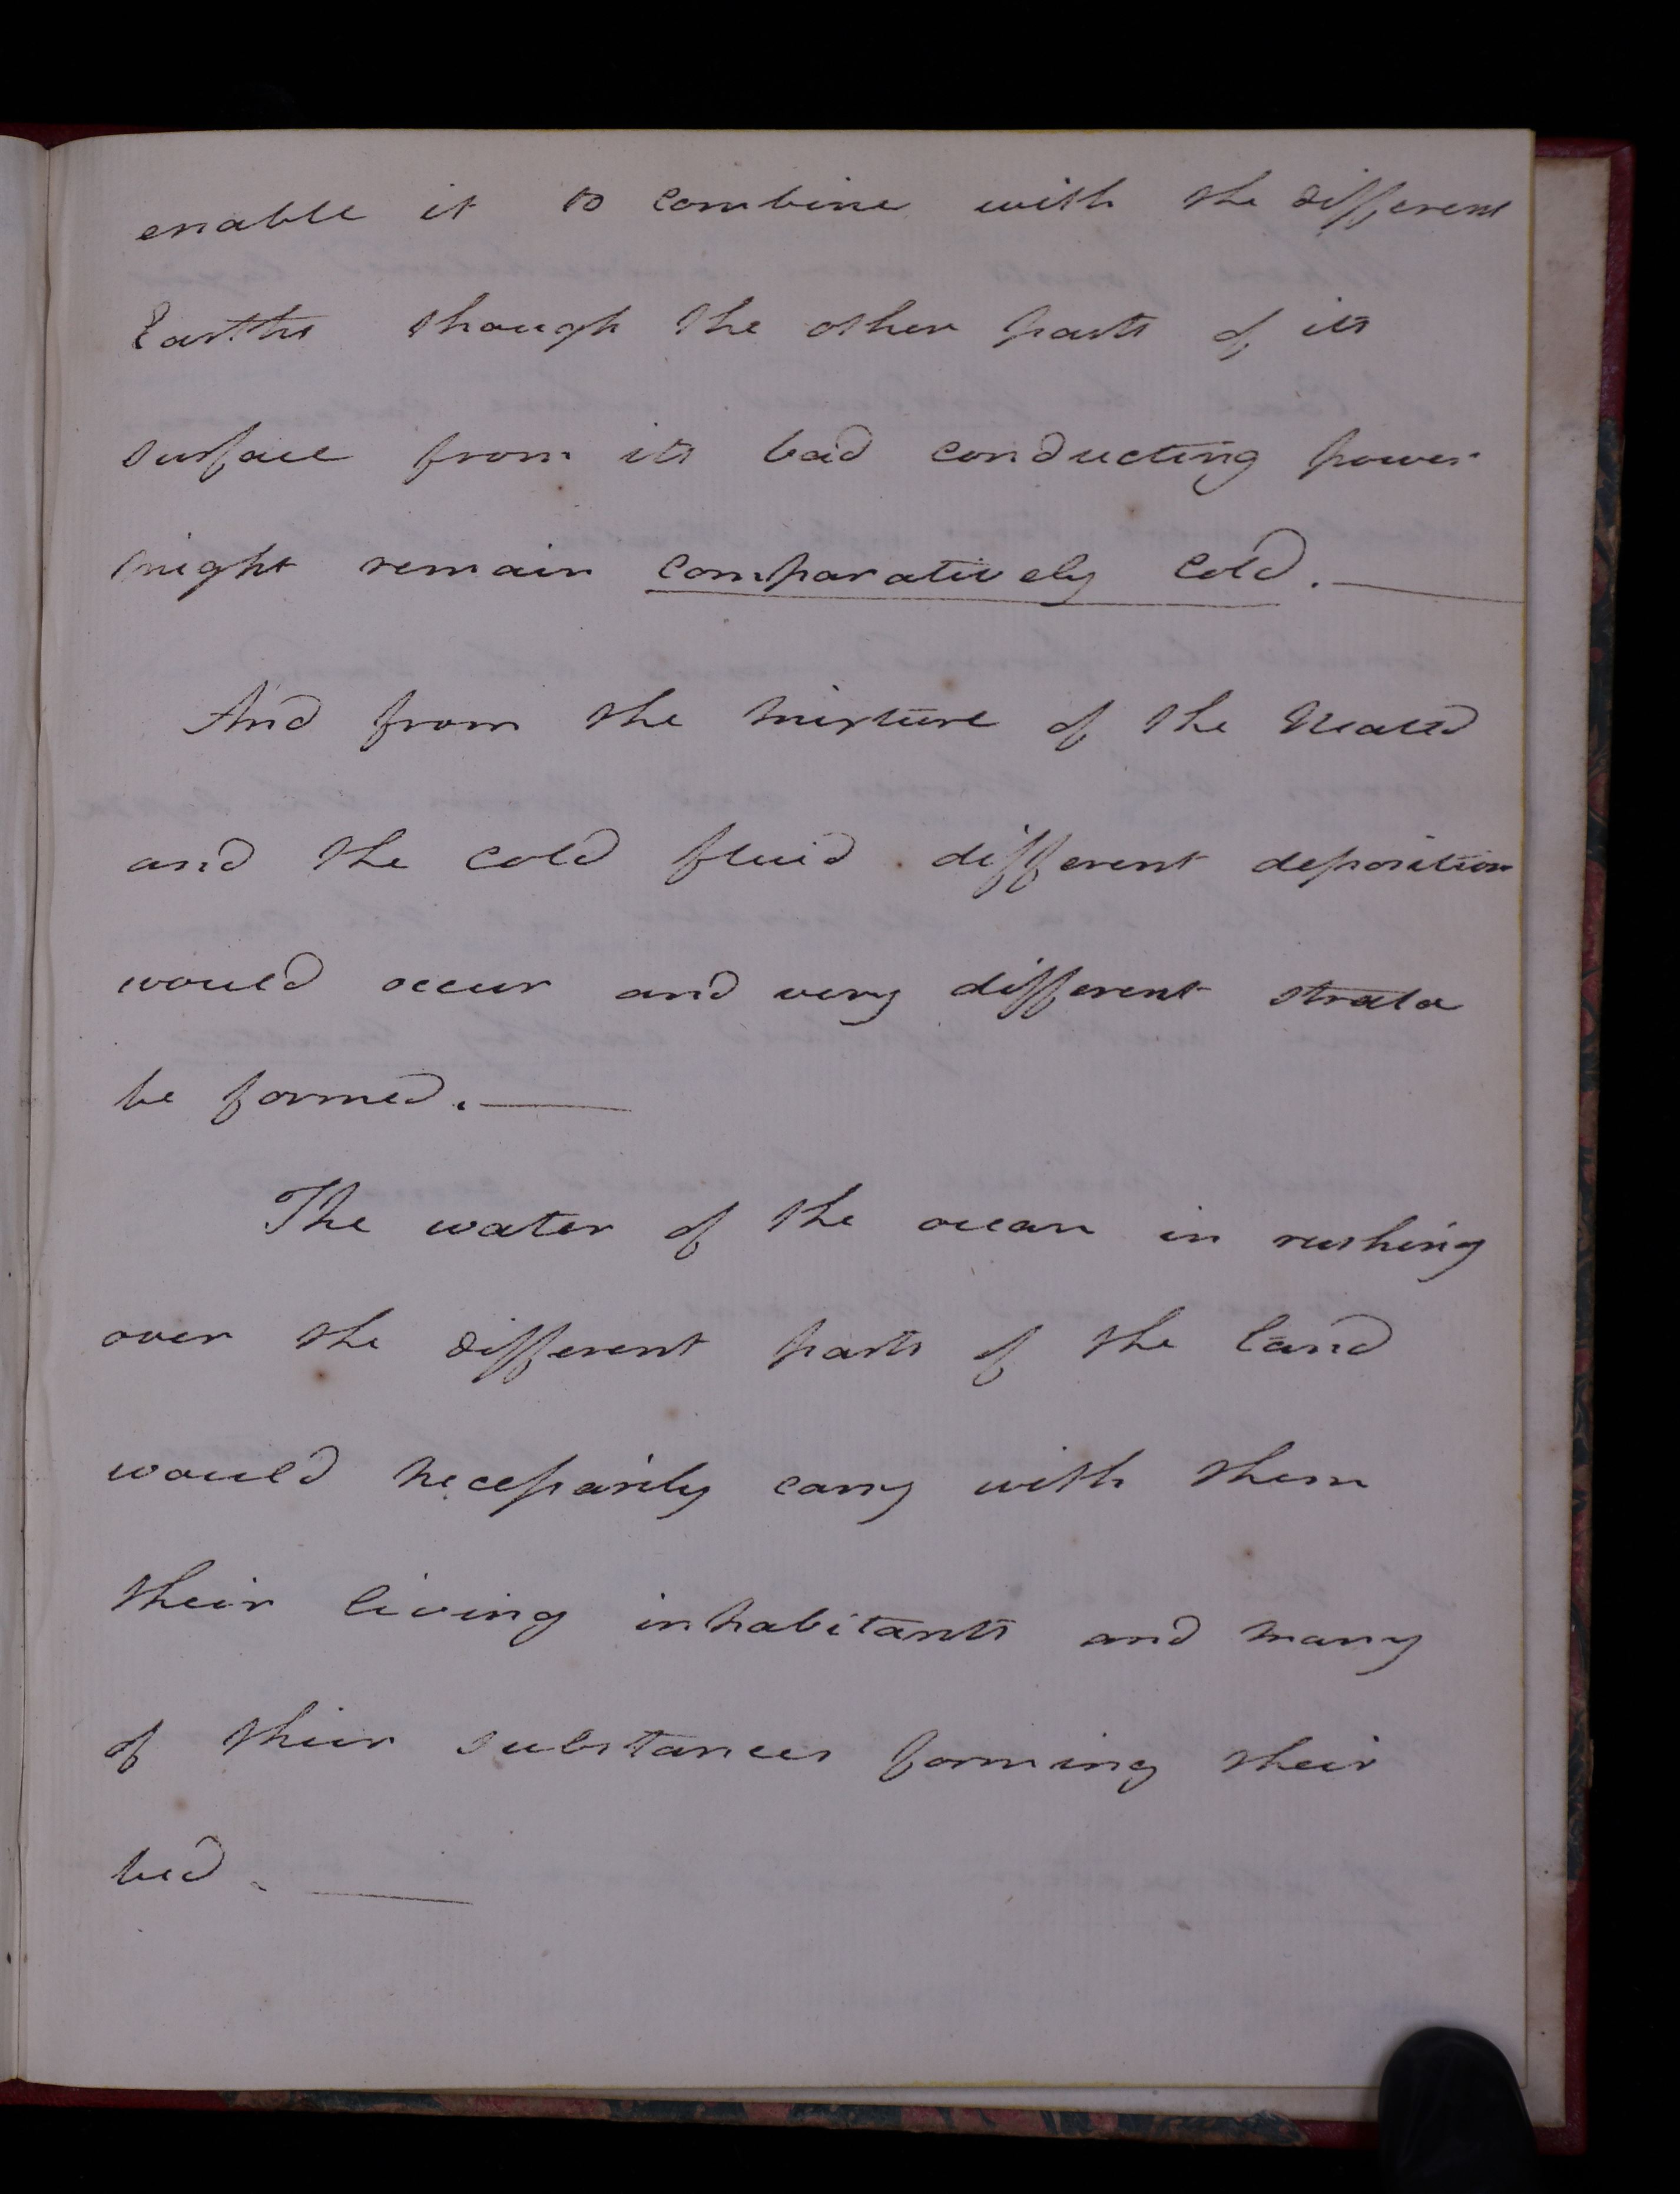 enable it to combine with the different
Earths though the other parts of its
surface from its bad conducting power
might remain comparatively cold. —
And from the mixture of the heated
and the cold fluid different deposition
would occur and very different strata
be formed. —
The water of the ocean in rushing
over the different parts of the land
would necessarily carry with them
their living inhabitants and many
of their substances forming their
bed. —